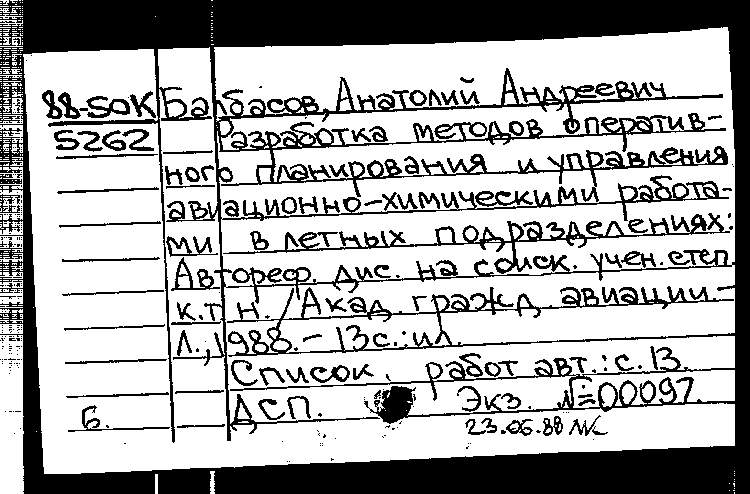 88-5ОК Балбасов, Анатолий Андреевич
5262 Разработка методов оператив-
ного планирования и управления
авиационно-химическими работа-
ми в летных подразделениях:
Автореф. дис. на соиск. учен. степ.
к.т.н. / Акад. гражд. авиации. –
Л., 1988. – 13 с.: ил.
Список. работ авт.: с. 13.
Б. ДСП. Экз. №00097.
23.06.88